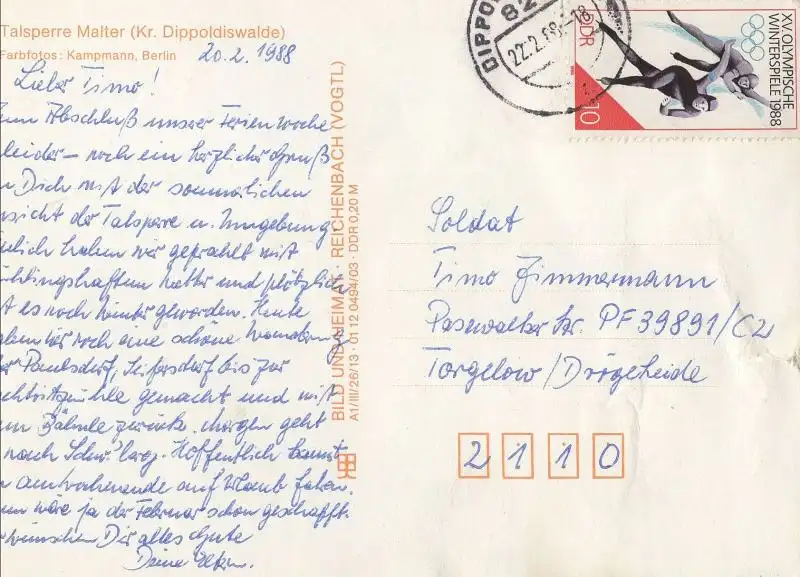 Talsperre Malter (Kr. Dippoldiswalde)
Farbfotos: Kampmann, Berlin
20.2.1988
Lieber Timo!
zum Abschluß unserer Ferienwoche
leider – noch ein herzlicher Gruß
n Dich mit der sommerlichen
nsicht der Talsperre u. Umgebung.
ulich haben wir geprahlt mit
ühlingshaftem Wetter und plötzlich
t es noch Winter geworden. Heute
aben wir noch eine schöne Wanderung
er Paulsdorf, Seifersdorf bis zur
gemacht und mit
m Bähnle zurück. Morgen geht
nach Hoffentlich kannst
am Wochenende auf Urlaub fahren.
nn wäre ja der Februar schon geschafft.
r wünschen Dir alles Gute
Deine Eltern.
BILD UND HEIMAT · REICHENBACH (VOGTL)
A1/III/26/13 · 01 12 0494/03 · DDR 0,20 M
DIPPOL
82
22.2.88-18
DDR
10
XV. OLYMPISCHE
WINTERSPIELE 1988
Soldat
Timo Zimmermann
Pasewalker Str. PF 39891/C2
Torgelow/Drögeheide
2110